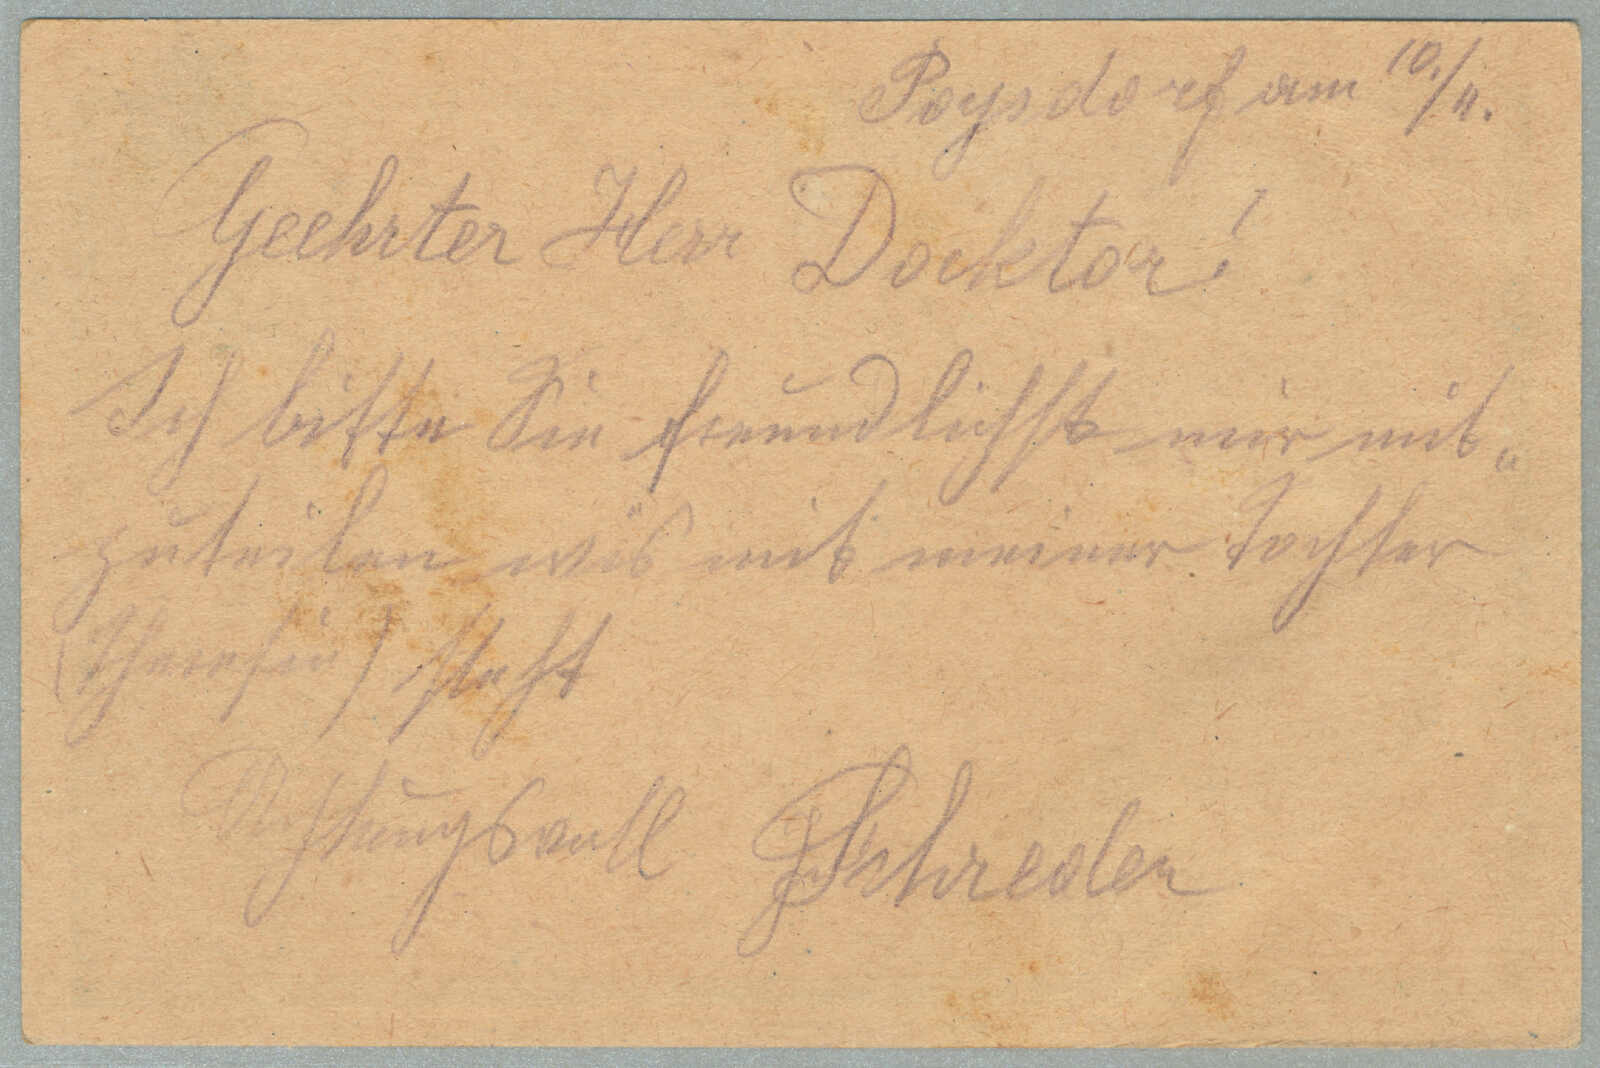 Poysdorf am 10./11.
Geehrter Herr Docktor!
Ich bitte Sie freundlichst mir mit„
zuteilen wies mit meiner Tochter
(Theresia) steht
Achtungsvoll Schreder